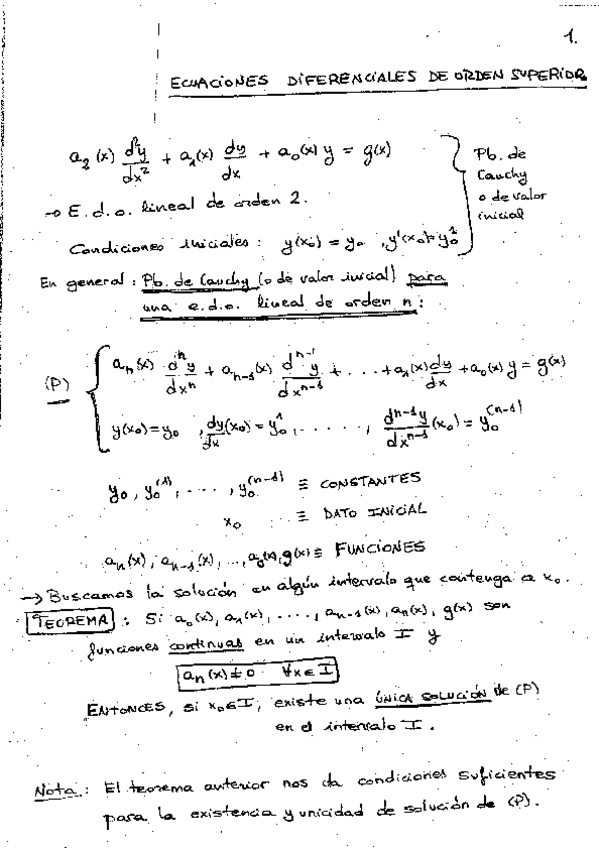 1.
ECUACIONES DIFERENCIALES DE ORDEN SUPERIOR
a₂(x) d²y/dx² + a₁(x) dy/dx + a₀(x) y = g(x)
→ E.d.o. lineal de orden 2.
Condiciones iniciales: y(x₀) = y₀ , y'(x₀) = y₀¹
Pb. de
Cauchy
o de valor
inicial
En general: Pb. de Cauchy (o de valor inicial) para
una e.d.o. lineal de orden n:
(P) { aₙ(x) dⁿy/dxⁿ + aₙ₋₁(x) dⁿ⁻¹y/dxⁿ⁻¹ + ... + a₁(x) dy/dx + a₀(x) y = g(x)
y(x₀) = y₀ , dy/dx(x₀) = y₀¹, ....., dⁿ⁻¹y/dxⁿ⁻¹(x₀) = y₀⁽ⁿ⁻¹⁾
y₀, y₀⁽¹⁾, ...., y₀⁽ⁿ⁻¹⁾ ≡ CONSTANTES
x₀ ≡ DATO INICIAL
aₙ(x), aₙ₋₁(x), ..., a₀(x), g(x) ≡ FUNCIONES
→ Buscamos la solución en algún intervalo que contenga a x₀.
TEOREMA: Si a₀(x), a₁(x), ....., aₙ₋₁(x), aₙ(x), g(x) son
funciones continuas en un intervalo I y
aₙ(x) ≠ 0 ∀x∈I
ENTONCES, si x₀∈I, existe una ÚNICA SOLUCIÓN de (P)
en el intervalo I.
Nota: El teorema anterior nos da condiciones suficientes
para la existencia y unicidad de solución de (P).